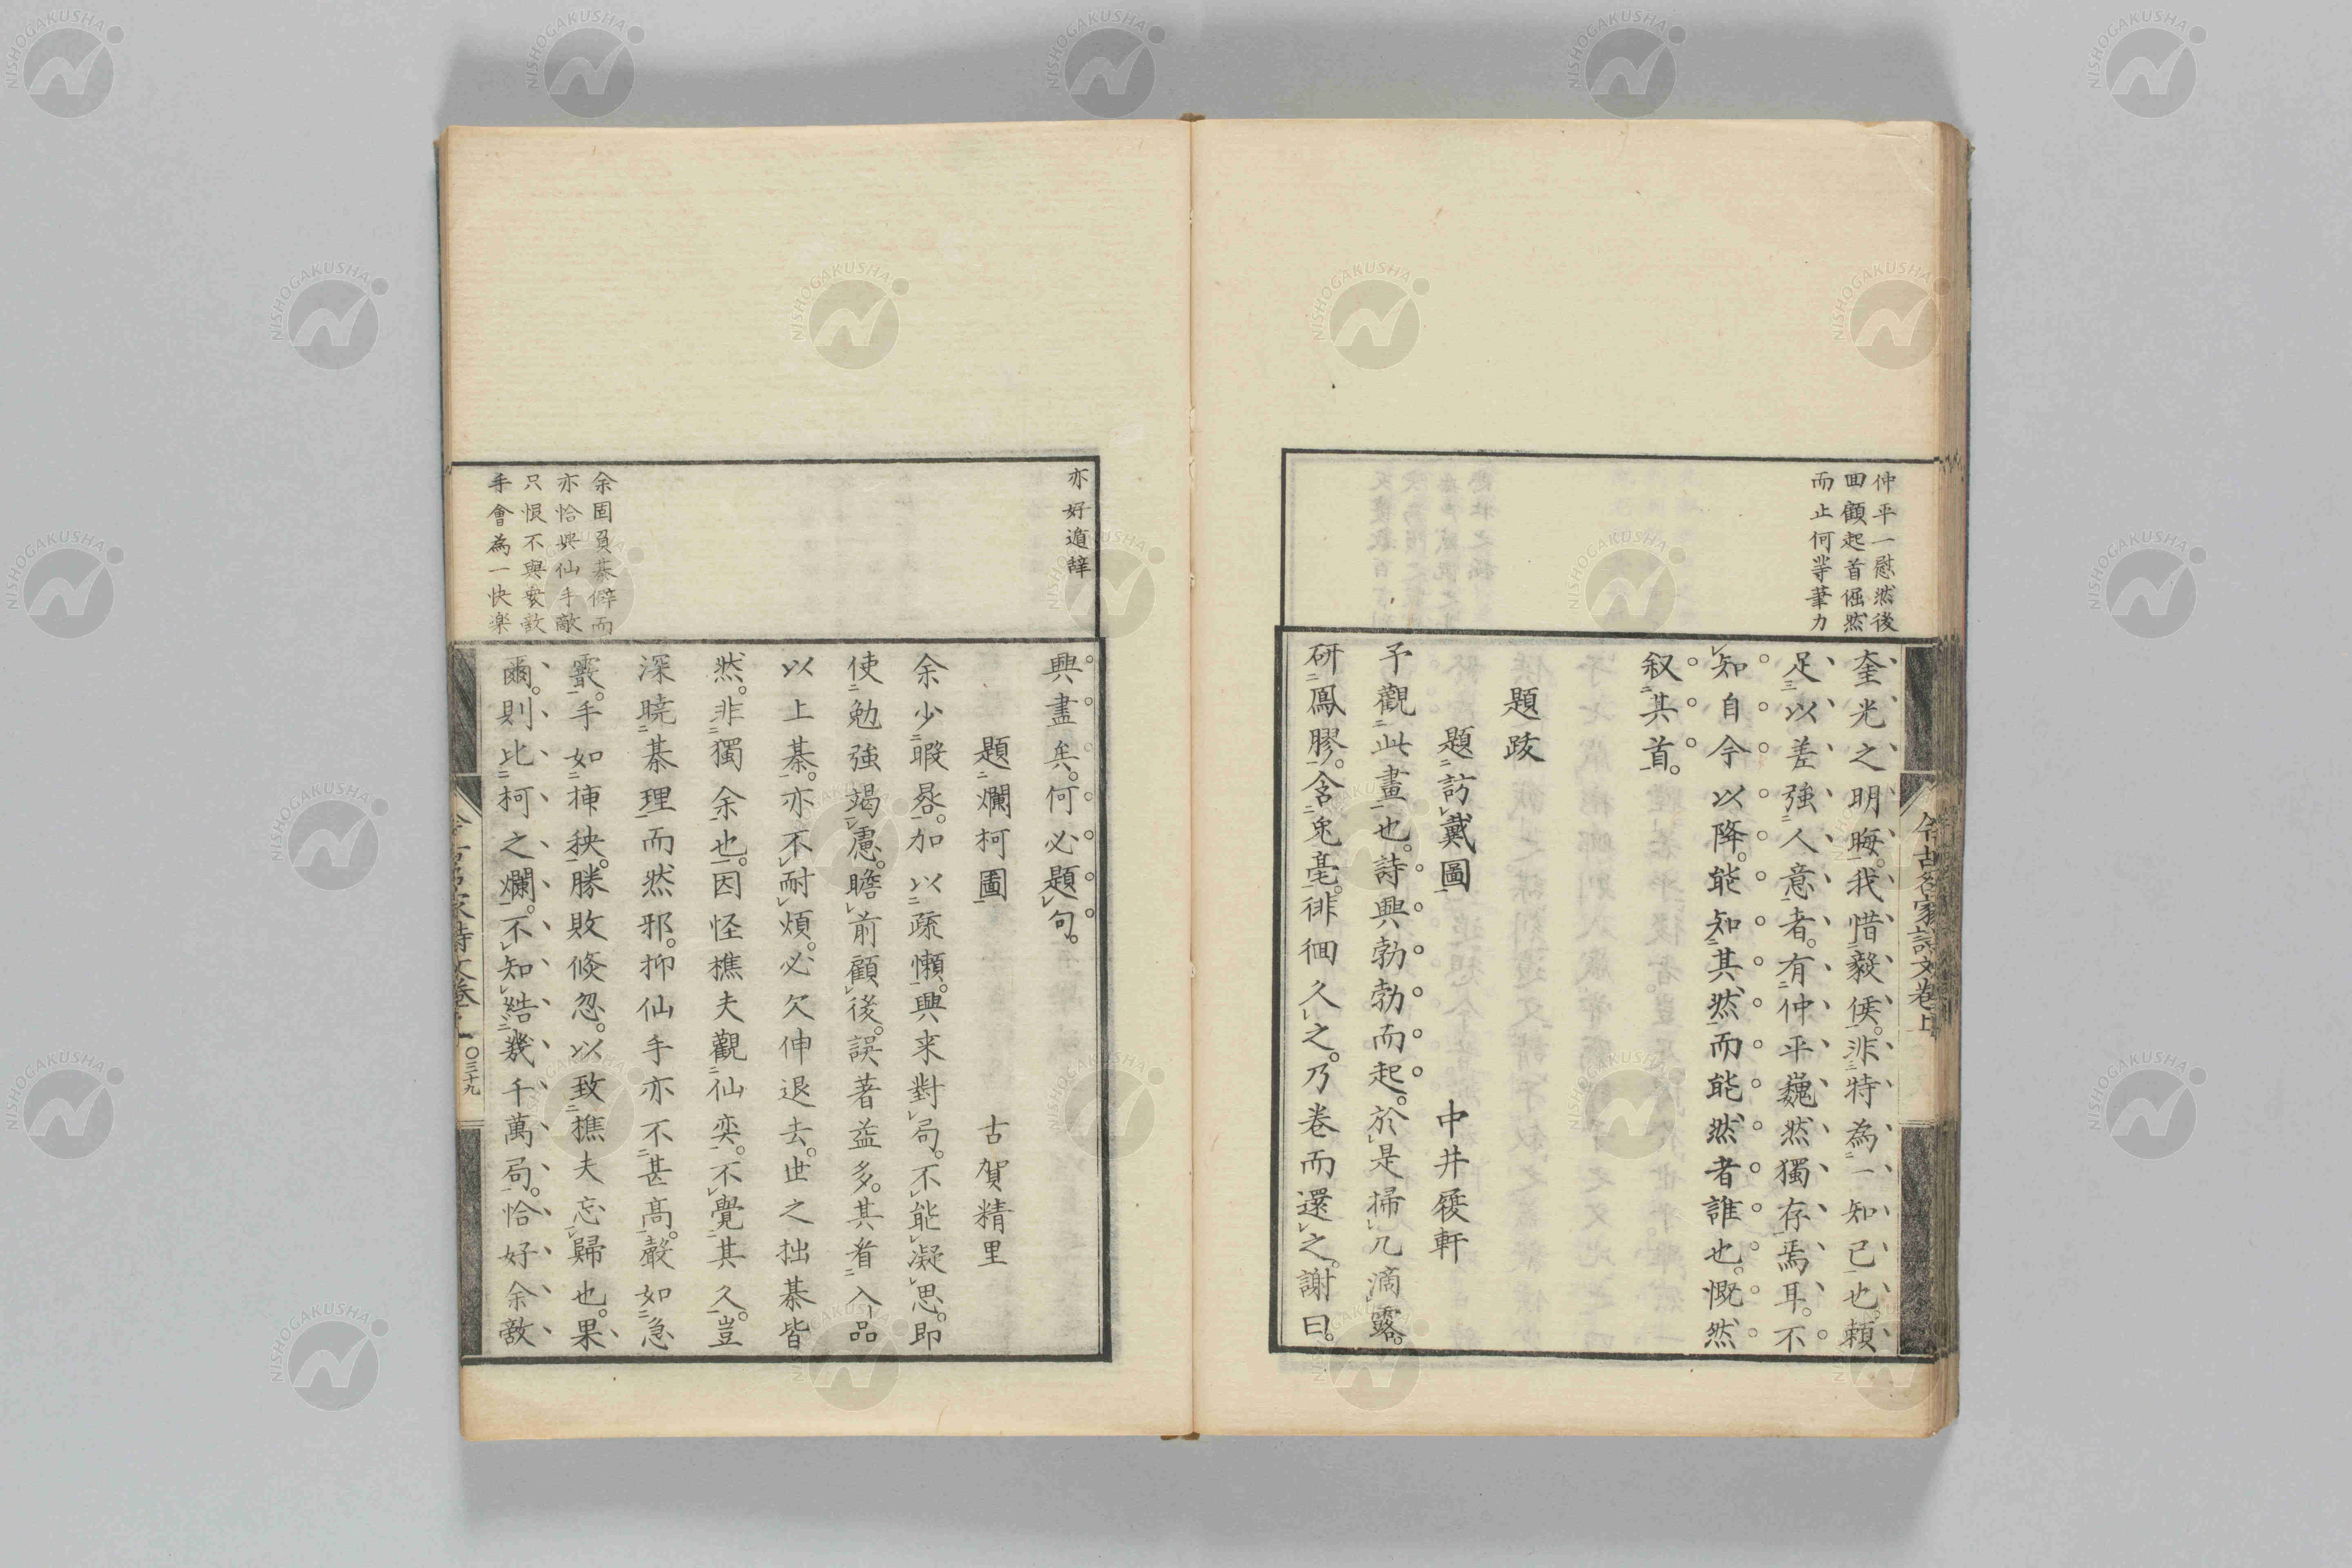 仲平一慰然後
回顧起首倔然
而止何等筆力
奎光之明晦。我惜毅侯。非特為一知已也。頼
足以差強人意者。有仲平巍然獨存焉耳。不
知自今以降。能知其然而能然者誰也。慨然
叙其首。
題跋
題訪戴圖 中井履軒
予觀此畫也。詩興勃勃而起。於是掃几滴露。
研鳳膠。含兎毫。徘徊久之。乃卷而還之。謝曰。
今古名家詩文卷上
亦好遁辞
興盡矣。何必題句。
題爛柯圖 古賀精里
余少暇晷。加以疏懶。興来對局。不能凝思。即
使勉強竭慮。瞻前顧後。誤著益多。其看入品
以上棊。亦不耐煩。必欠伸退去。世之拙棊皆
然。非獨余也。因怪樵夫觀仙奕。不覺其久。豈
深暁棊理而然邪。抑仙手亦不甚高。聲如急
霰。手如挿秧。勝敗倐忽。以致樵夫忘歸也。果
爾。則比柯之爛。不知結幾千萬局。恰好余敵
余固負棊僻而
亦恰與仙手敵
只恨不與敵
手會為一快楽
〇三十九
NISHOGAKUSHA